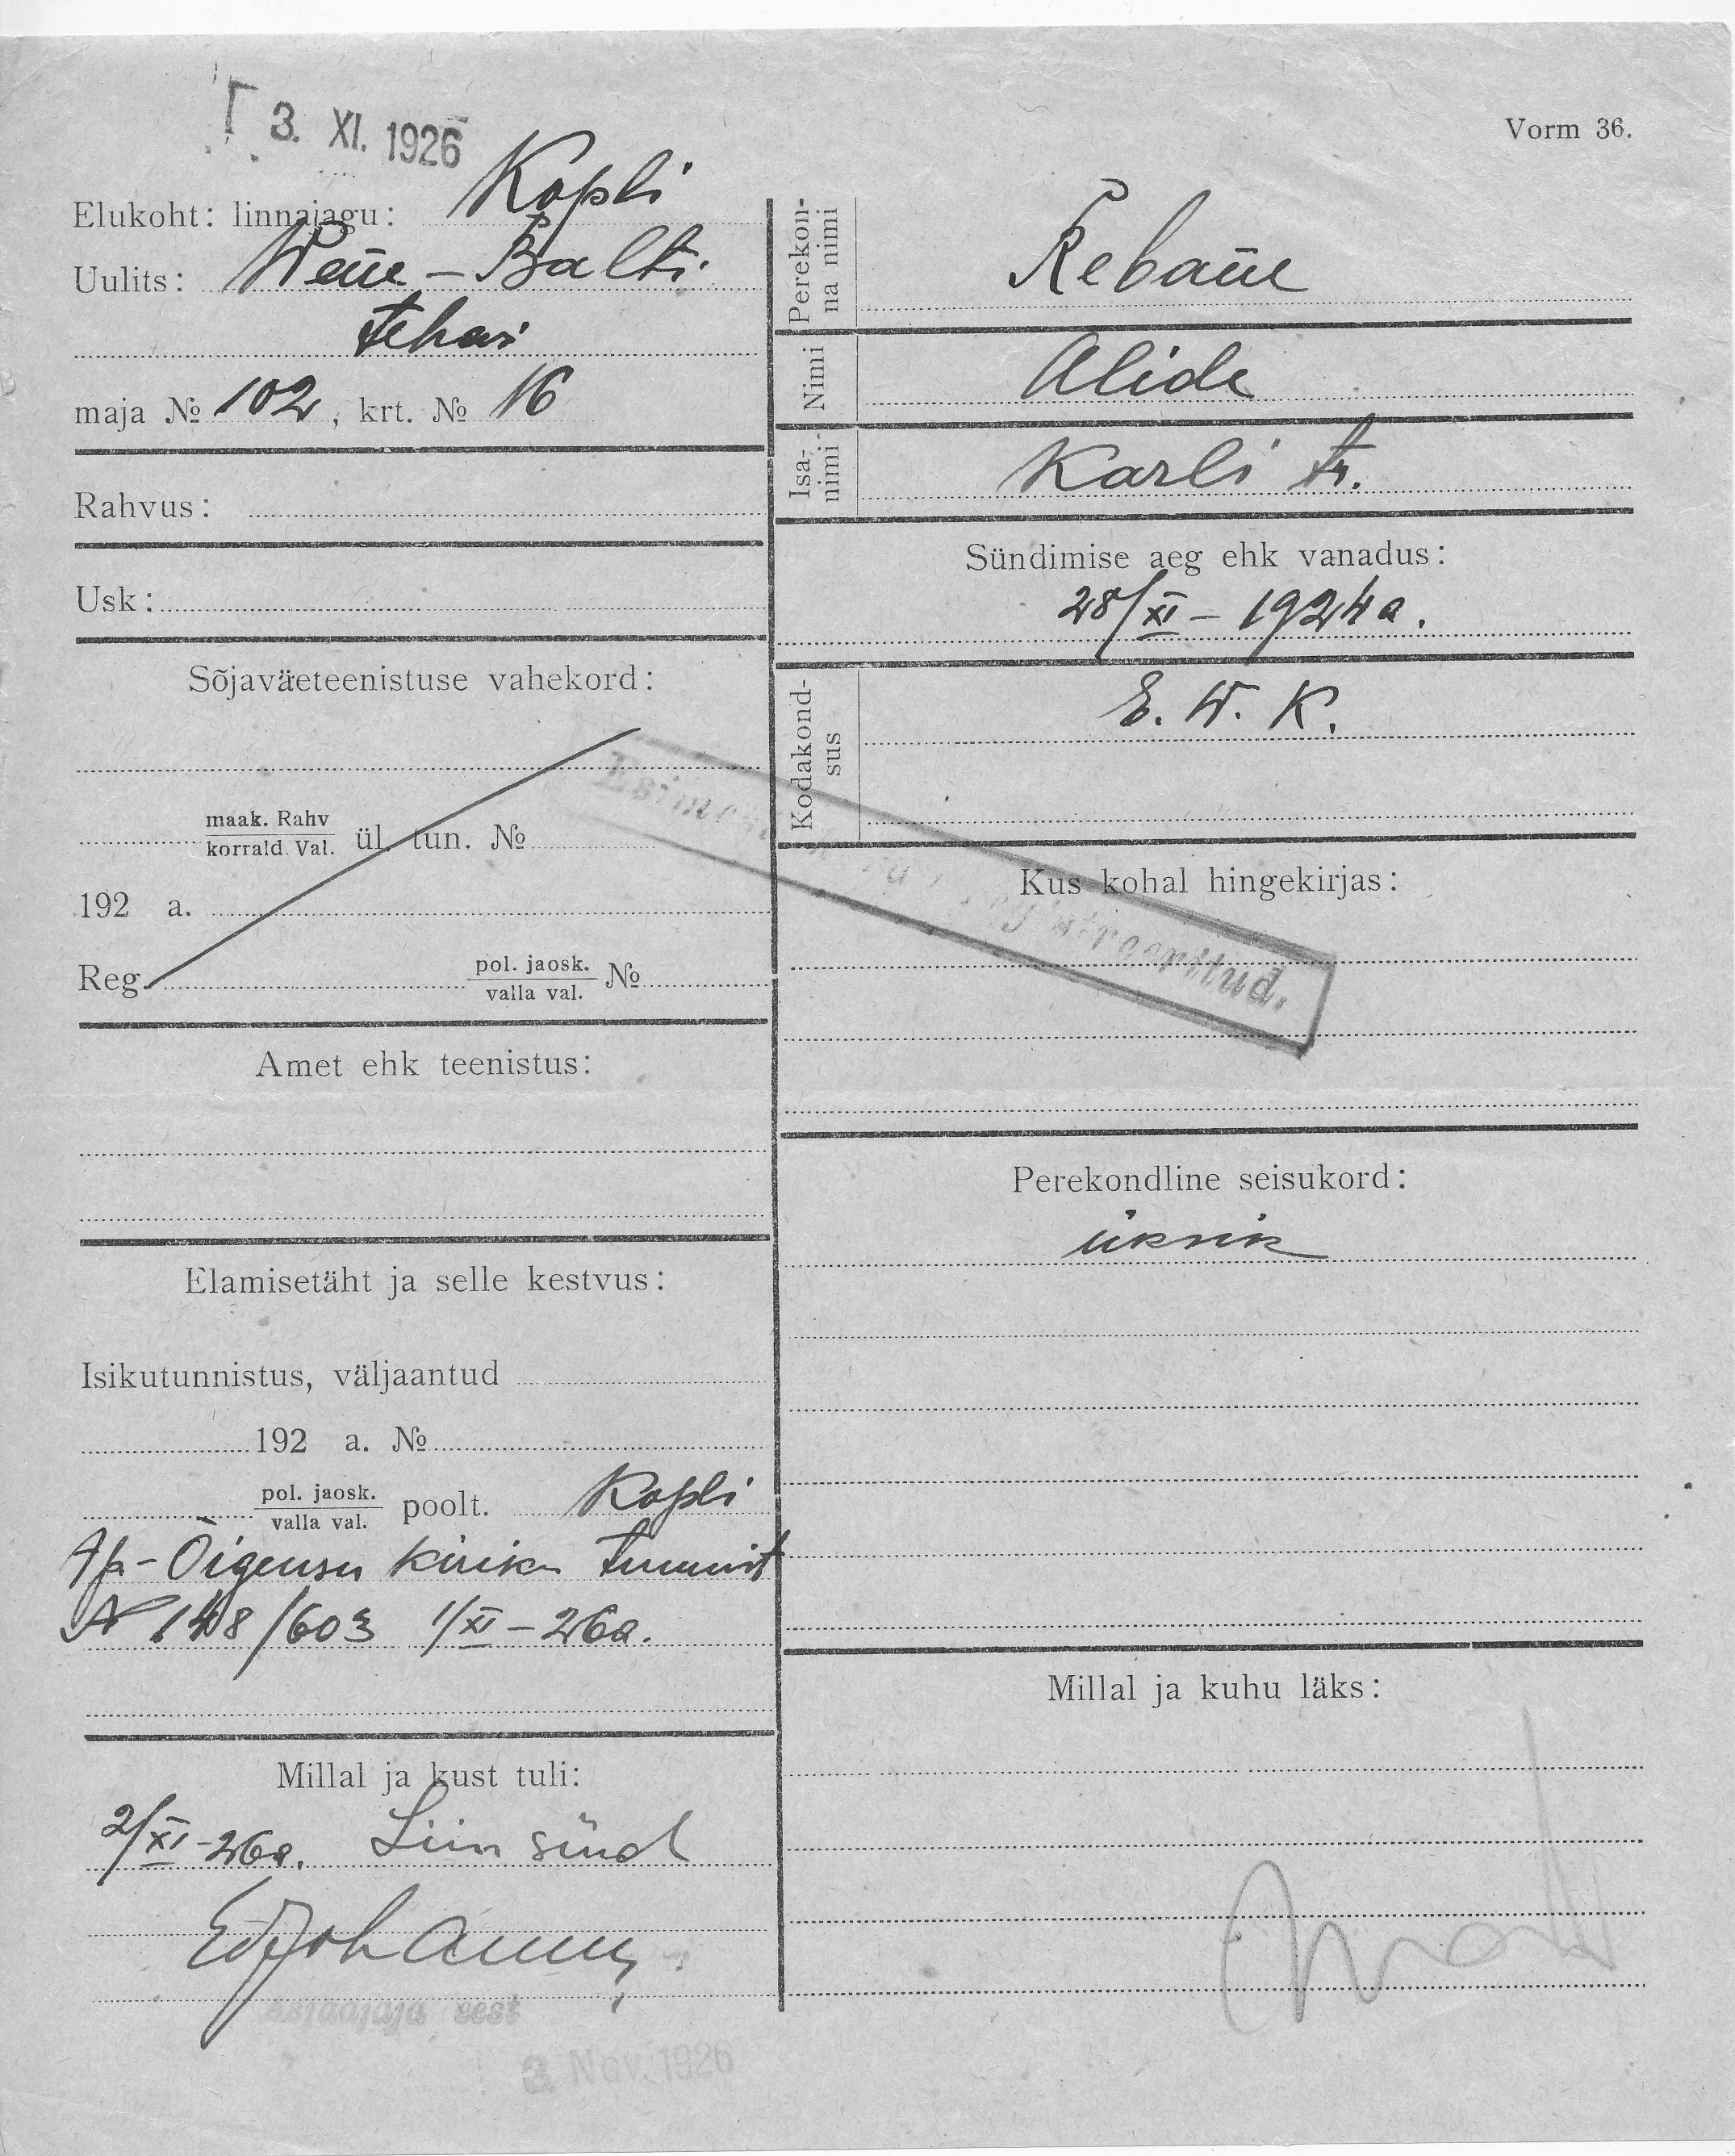 3. XI. 1926
Vorm 36.
Elukoht: linnajagu: Kopli
Uulits: Wene-Balti
tehas
maja № 102, krt. № 16
Rahvus:
Usk:
Sõjaväeteenistuse vahekord:
maak. Rahv
korrald. Val. ül. tun. №
192 a.
Reg. pol. jaosk. №
valla val.
Amet ehk teenistus:
Elamisetäht ja selle kestvus:
Isikutunnistus, väljaantud
192 a. №
pol. jaosk. poolt. Kopli
valla val.
Ap-Õigeusu kiriku tunnist
№ 148/603 1/XI-26a.
Millal ja kust tuli:
2/XI-26a. Siin sünd
asjaajaja eest
3 Nov. 1926
Perekon-
na nimi
Rebane
Nimi
Alide
Isa-
nimi
Karli tr.
Sündimise aeg ehk vanadus:
28/XI-1924a.
Kodakond-
sus
E. W. K.
registreeritud.
Kus kohal hingekirjas:
Perekondline seisukord:
üksik
Millal ja kuhu läks: